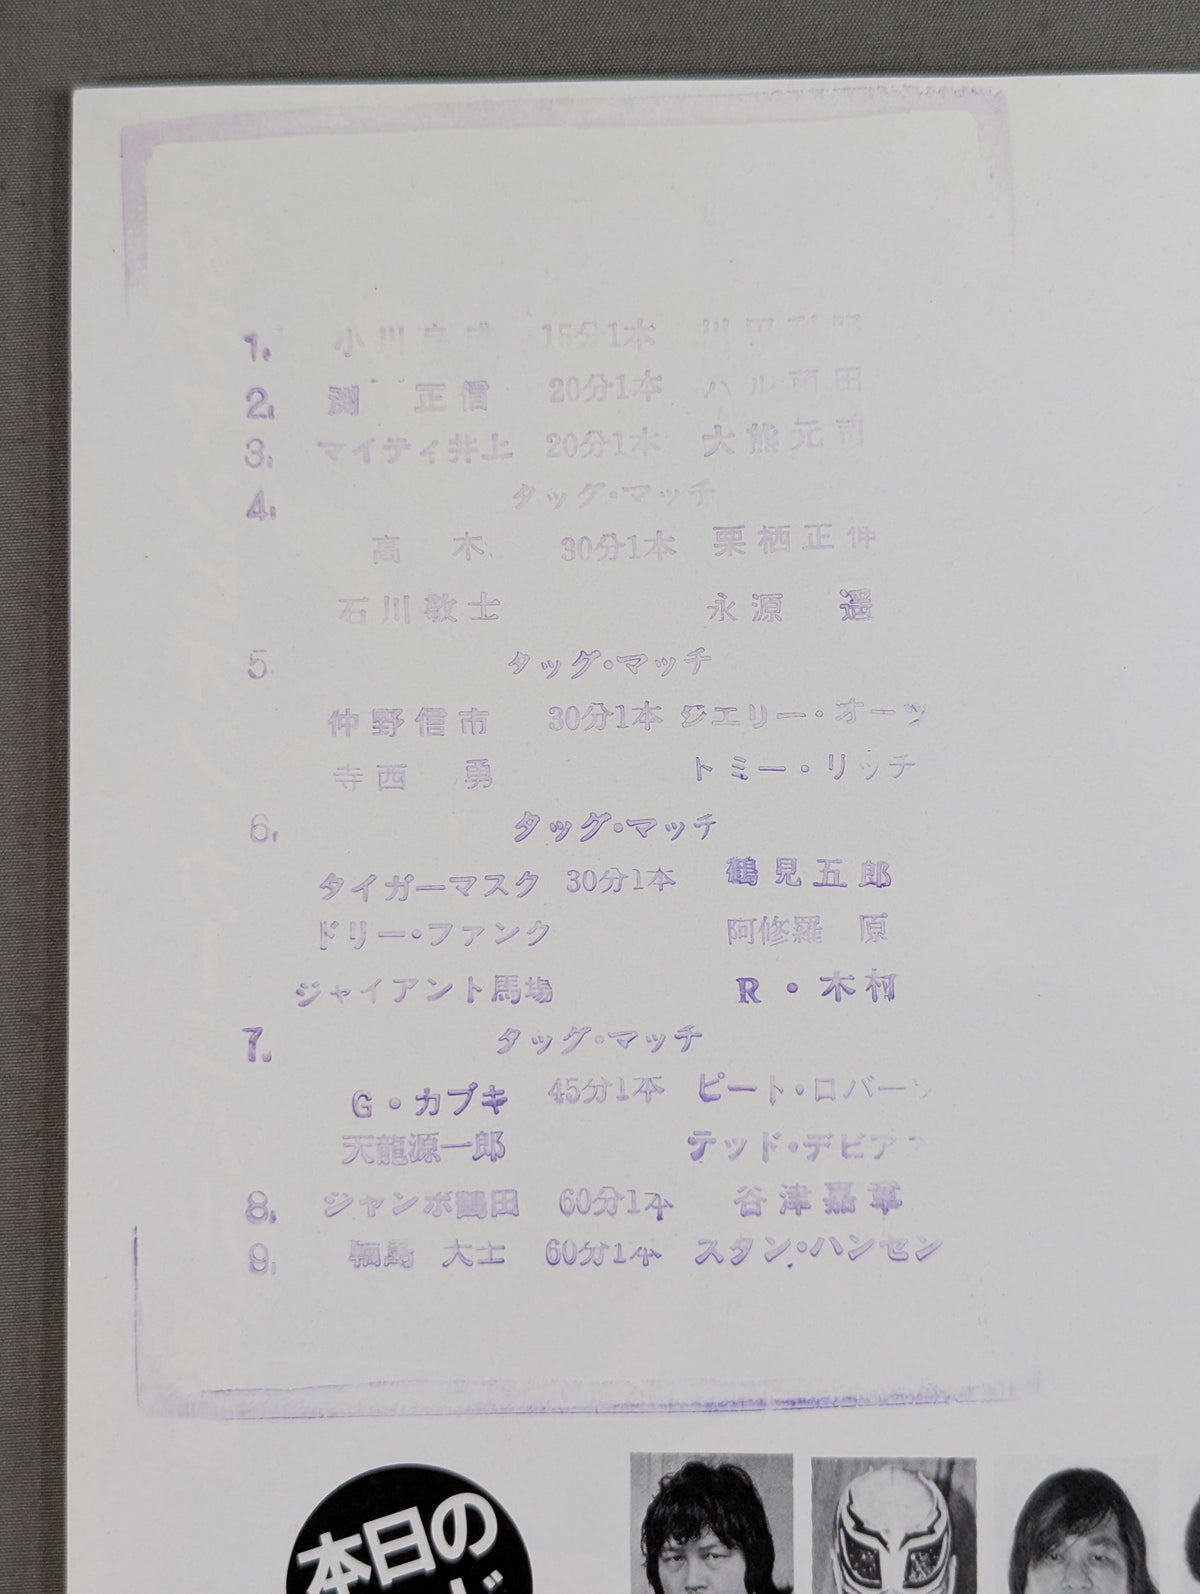 1. 小川良成 15分1本 川田利明
2. 渕 正信 20分1本 ハル薗田
3. マイティ井上 20分1本 大熊元司
4. タッグ・マッチ
高 木 30分1本 栗栖正伸
石川敬士 永源 遥
5 タッグ・マッチ
仲野信市 30分1本 ジエリー・オーツ
寺西 勇 トミー・リッチ
6. タッグ・マッチ
タイガーマスク 30分1本 鶴見五郎
ドリー・ファンク 阿修羅 原
ジャイアント馬場 R・木村
7. タッグ・マッチ
G・カブキ 45分1本 ピート・ロバーツ
天龍源一郎 テッド・デビアス
8. ジャンボ鶴田 60分1本 谷津嘉章
9. 輪島 大士 60分1本 スタン・ハンセン
本日の